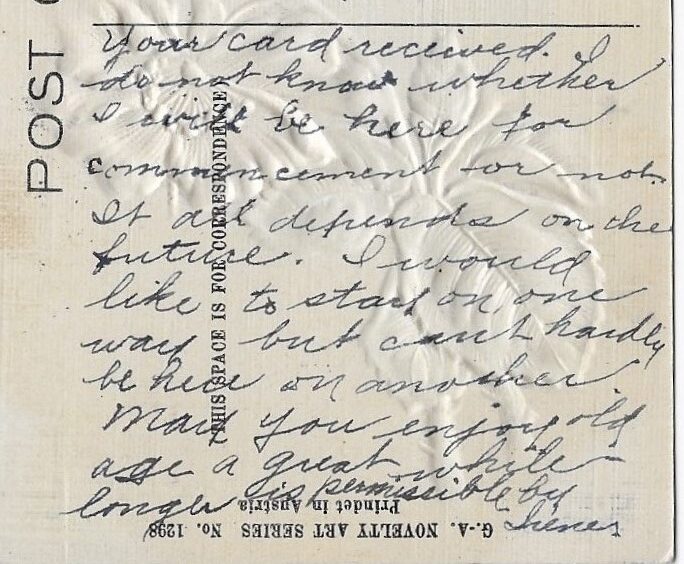 POST C
Your card received. I
do not know whether
I will be here for
commencement or not.
It all depends on the
future. I would
like to stay on one
way but can't hardly
be here on another
May you enjoy old
age a great while
longer is permissible by
Irene
(THIS SPACE IS FOR CORRESPONDENCE)
G.-A. NOVELTY ART SERIES No. 1298
Printet in Austria